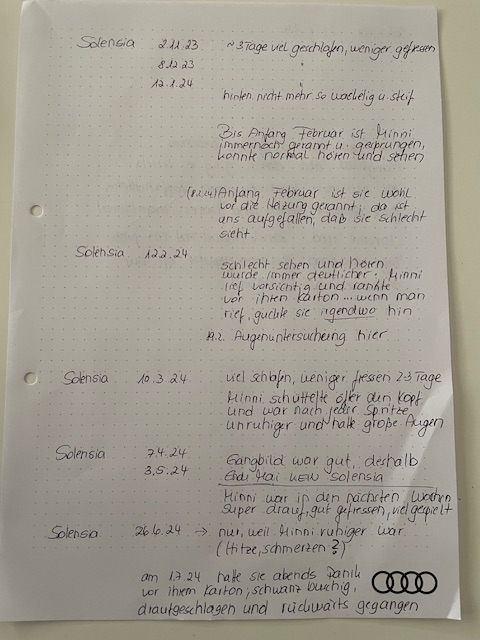 Solensia 2.11.23 ~3 Tage viel geschlafen, weniger gefressen
8.12.23 "
12.1.24 "
hinten nicht mehr so wackelig u. steif
Bis Anfang Februar ist Minni
immernoch gerannt u. gesprungen,
konnte normal hören und sehen
Anfang Februar ist sie wohl
vor die Heizung gerannt; da ist
uns aufgefallen, daß sie schlecht
sieht.
Solensia 12.2.24
schlecht sehen und hören
wurde immer deutlicher. Minni
lief vorsichtig und rannte
vor ihren Karton... wenn man
rief, guckte sie irgendwo hin
19.2. Augenuntersuchung hier
Solensia 10.3.24 viel schlafen, weniger fressen 2-3 Tage
Minni schüttelte öfter den Kopf
und war nach jeder Spritze
unruhiger und hatte große Augen
Solensia 7.4.24 Gangbild war gut, deshalb
3.5.24 Ende Mai KEIN Solensia
Minni war in den nächsten Wochen
super drauf, gut gefressen, viel gespielt
Solensia 26.6.24 → nur, weil Minni ruhiger war
(Hitze, schmerzen ?)
am 1.7.24 hatte sie abends Panik
vor ihrem Karton, schwanz buschig,
draufgeschlagen und rückwärts gegangen